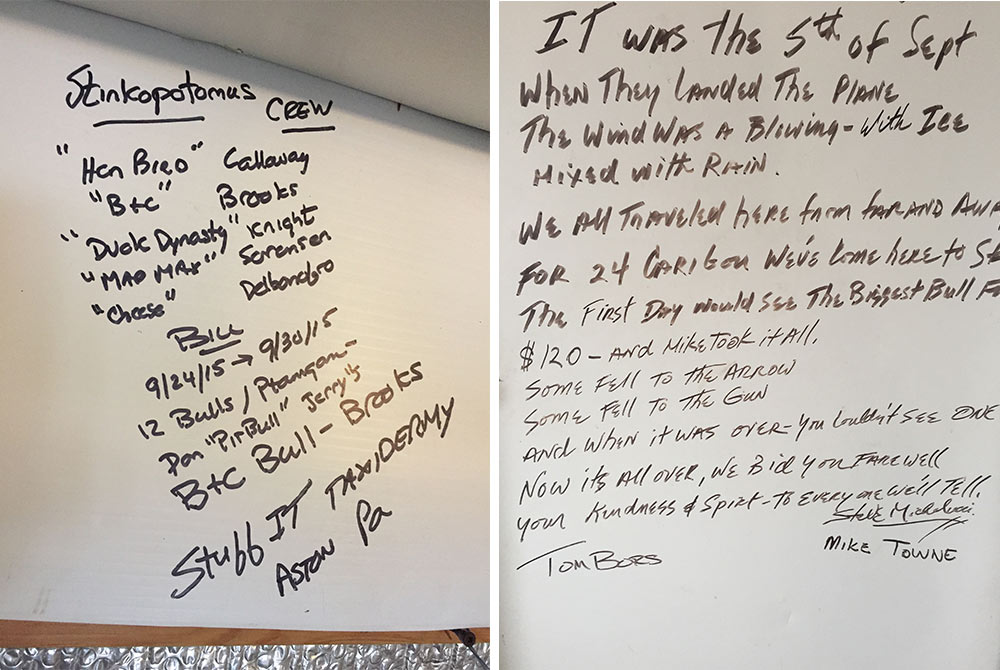 Stinkopotamus CREW
"Hen Bird" Callaway
"B+C" Brooks
"Duck Dynasty" Knight
"MAD MAX" Sorensen
"Cheese"
Bill
9/24/15 → 9/30/15
12 Bulls / Ptarmgan-
Don "Pit Bull" Jerry's
B+C Bull - Brooks
Stuff IT TAXIDERMY
ASTON Pa
IT was the 5th of Sept
When They Landed The Plane
The Wind Was A Blowing - With Ice
Mixed with Rain.
We All Traveled here from far and Awa
For 24 Caribou We've Come here to
The First Day would see The Biggest Bull
$120 - And Mike Took it All.
Some Fell to the Arrow
Some Fell to the Gun
And when it was over - you Couldn't see ONE
Now it's All over, we Bid you Farewell
your Kindness & Spirit - To Everyone we'll Tell.
Steve
Mike Towne
Tom Bors